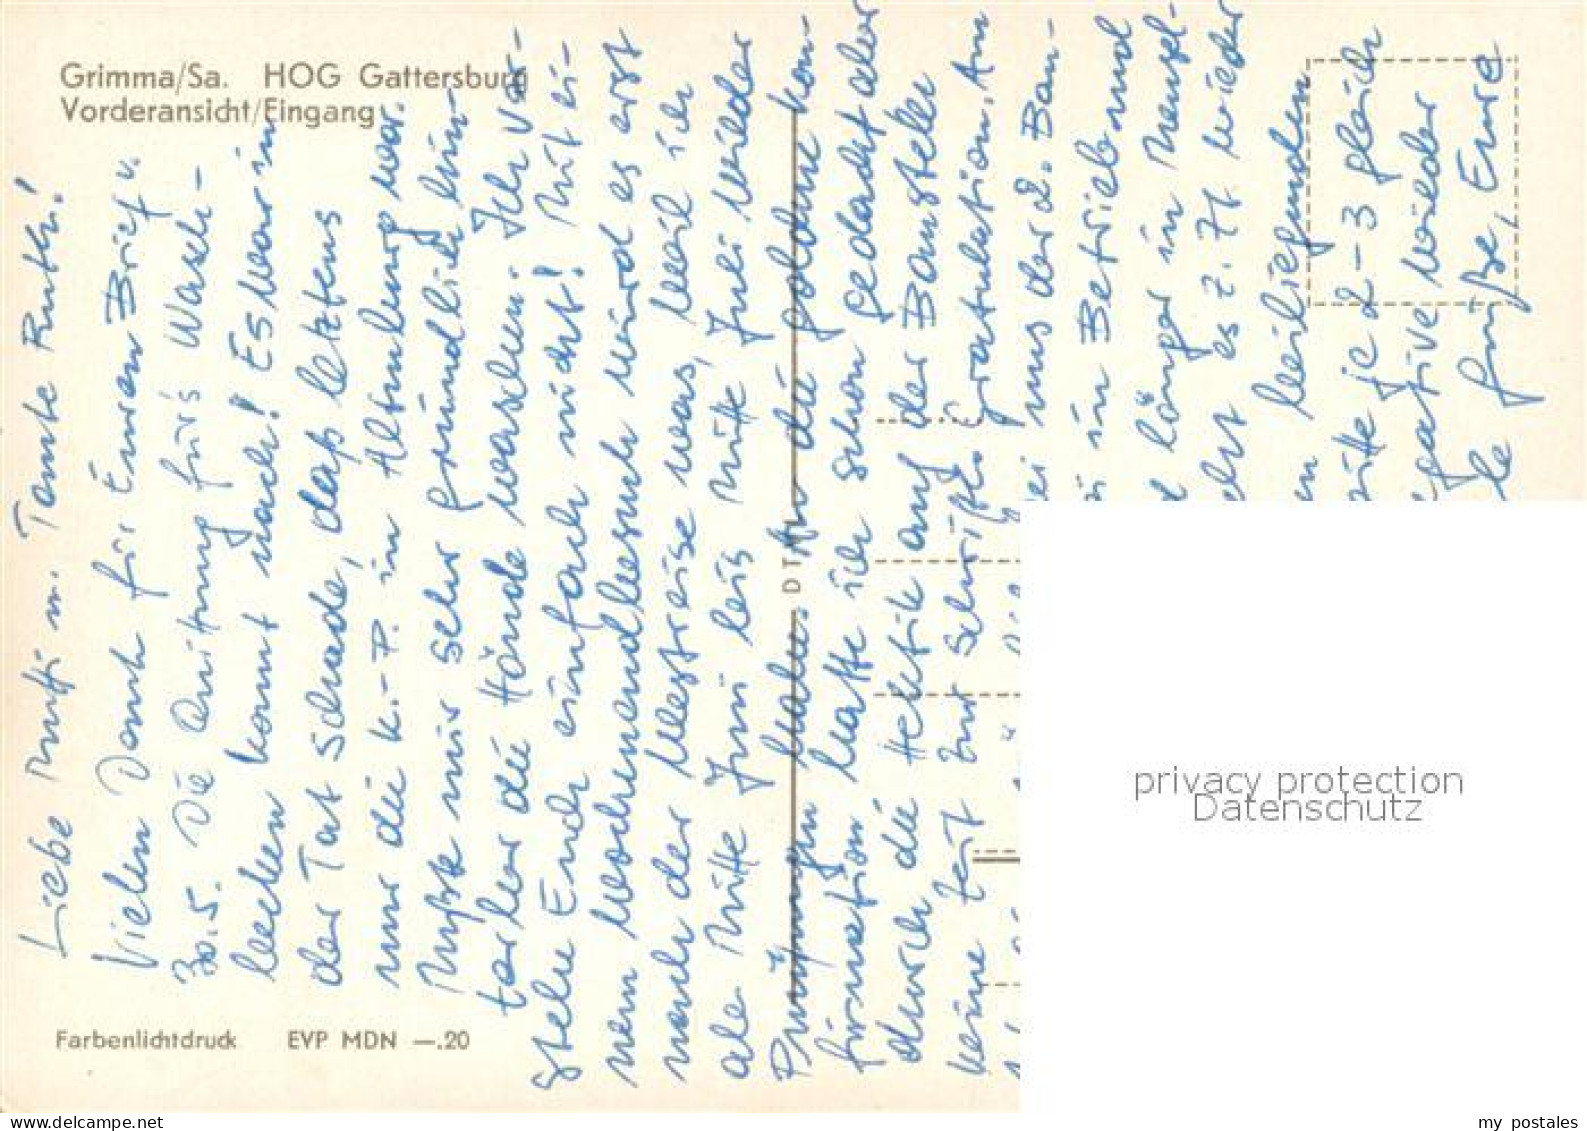 Grimma/Sa. HOG Gattersburg
Vorderansicht/Eingang
Liebe Mutti u. Tante Ruth!
Vielen Dank für Euren Brief v.
30.5. Die Quittung fürs Wasch-
becken kommt nach! Es war in
der Tat schade, daß letztens
nur die K.-P. in Altenburg war.
Mußte mir sehr gründlich hin-
terher die Hände waschen. Ich ver-
stehe Euch einfach nicht! Mit ei-
nem Wochenendbesuch wird es erst
nach der Westreise was, weil ich
ab Mitte Juni bis Mitte Juli wieder
Prüfungen habe. An die goldene Kon-
firmation hatte ich schon gedacht aber
durch die Hektik auf der Baustelle
keine Zeit zur schriftl. Gratulation. Am
bei uns der 2. Bau-
in Betrieb und
länger in Meusel-
es z. Zt. wieder
beiliegenden
bitte je 2-3 gleich
Negative wieder
Grüße, Eure
DT
Farbenlichtdruck EVP MDN —.20
privacy protection
Datenschutz
delcampe.net
my_postales